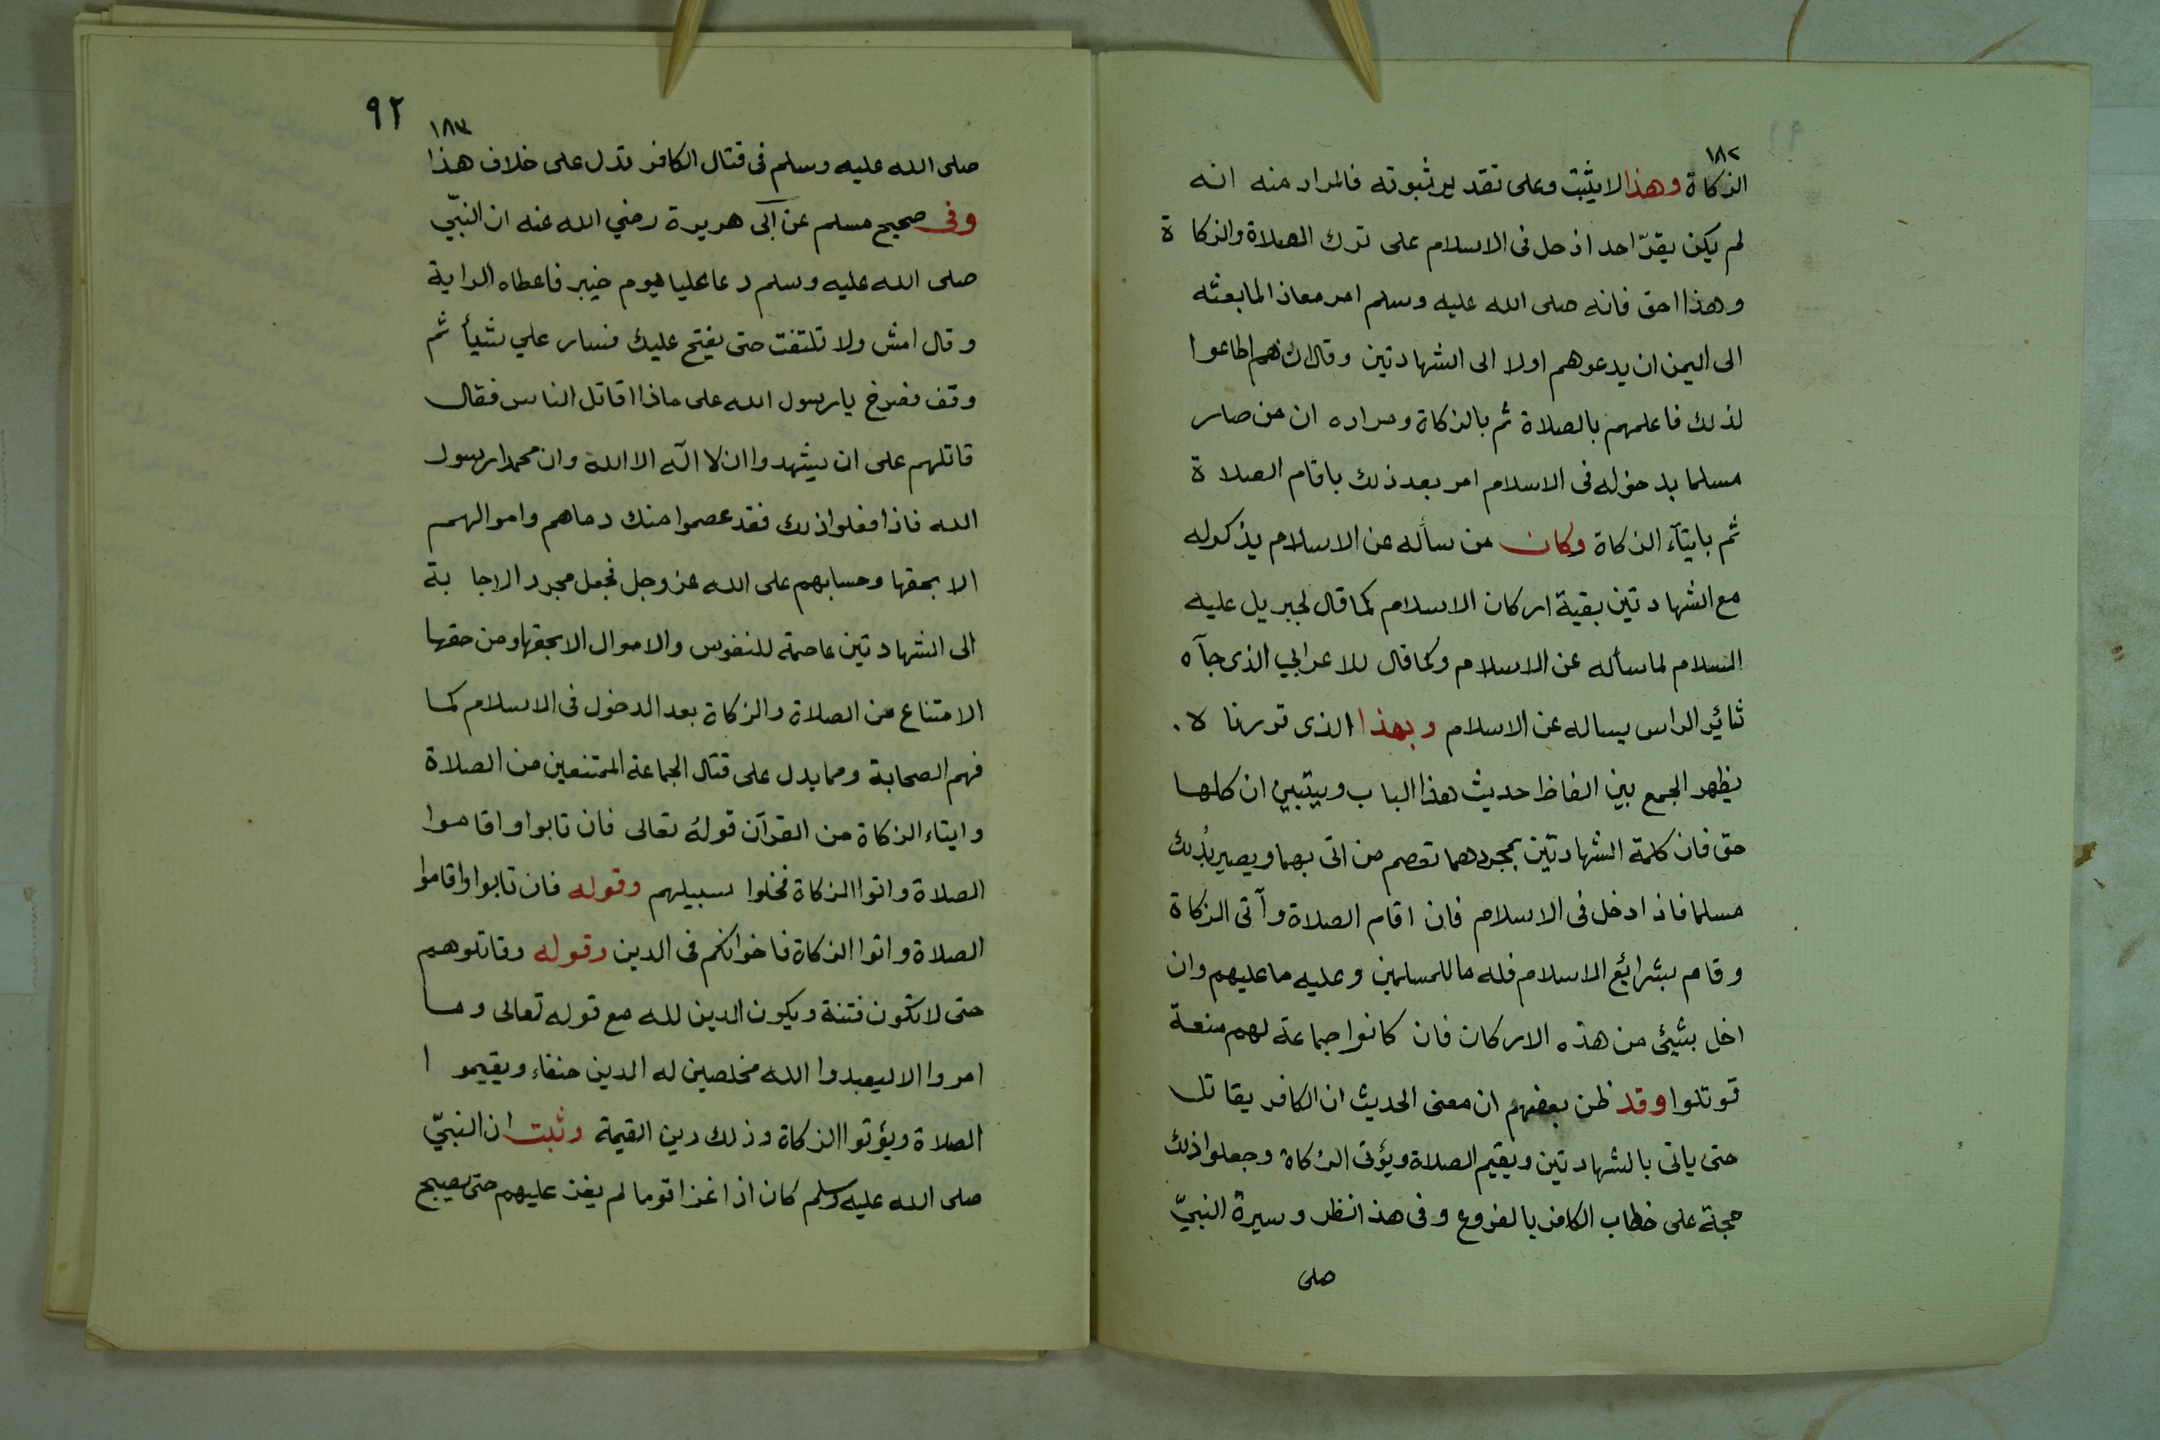 ١٨٢
الزكاة وهذا لا يثبت وعلى تقدير ثبوته فالمراد منه انه
لم يكن يقرّ احد اذحل فى الاسلام على ترك الصلاة والزكاة
وهذا احق فانه صلى الله عليه وسلم امر معاذ المابعثه
الى اليمن ان يدعوهم اولا الى الشهادتين وقال ان هم اطاعوا
لذلك فاعلمهم بالصلاة ثم بالزكاة ومراده ان من صار
مسلما بدخوله فى الاسلام امر بعد ذلك باقام الصلاة
ثم بايتآء الزكاة وكان من سأله عن الاسلام يذكر له
مع الشهادتين بقية اركان الاسلام كما قال لجبريل عليه
السلام لما سأله عن الاسلام وكما قال للاعرابي الذى جآه
ثائير الراس يساله عن الاسلام وبهذا الذى قررنا لا.
يظهر الجمع بين الفاظ احديث هذا الباب ويتبين ان كلها
حق فان كلمة الشهادتين بمجردهما تعصم من اتى بهما ويصير بذلك
مسلما فاذا دخل فى الاسلام فان اقام الصلاة وآتى الزكاة
وقام بشرائع الاسلام فله ما للمسلمين وعليه ما عليهم وان
اخل بشيئ من هذه الاركان فان كانوا جماعة لهم منعة
قوتلوا وقد ظن بعضهم ان معنى الحديث ان الكافر يقاتل
حتى ياتى بالشهادتين ويقيم الصلاة ويؤتى الزكاة وجعلوا ذلك
حجة على خطاب الكافر بالفروع وفى هذا نظر وسيرة النبيّ
صلى
٩٢
١٨٣
صلى الله عليه وسلم فى قتال الكافر تدل على خلاف هذا
وفى صحيح مسلم عن ابى هريرة رضي الله عنه ان النبّي
صلى الله عليه وسلم دعا عليا يوم خيبر فاعطاه الراية
وقال امش ولا تلتفت حتى يفتح عليك فسار علي شيأ ثم
وقف فصرخ يا رسول الله على ماذا اقاتل الناس فقال
قاتلهم على ان يشهدوا ان لا اله الا الله وان محمدا رسول
الله فاذا فعلوا ذلك فقد عصموا منك دماهم واموالهم
الا بحقها وحسابهم على الله عز وجل فجعل مجرد الاجابة
الى الشهادتين عاصمة للنفوس والاموال الا بحقها ومن حقها
الامتناع من الصلاة والزكاة بعد الدخول فى الاسلام كما
فهم الصحابة ومما يدل على قتال الجماعة الممتنعين من الصلاة
وايتاء الزكاة من القرآن قولهُ تعالى فان تابوا واقاموا
الصلاة واتوا الزكاة فخلوا سبيلهم وقوله فان تابوا واقاموا
الصلاة واتوا الزكاة فاخوانكم فى الدين وقوله وقاتلوهم
حتى لا تكون فتنة ويكون الدين لله مع قوله تعالى وما
امروا الا ليعبدوا الله مخلصين له الدين حنفاء ويقيموا
الصلاة ويؤتوا الزكاة وذلك دين القيمة وثبت ان النبيّ
صلى الله عليه وسلم كان اذا غزا قوما لم يغز عليهم حتى يصبح